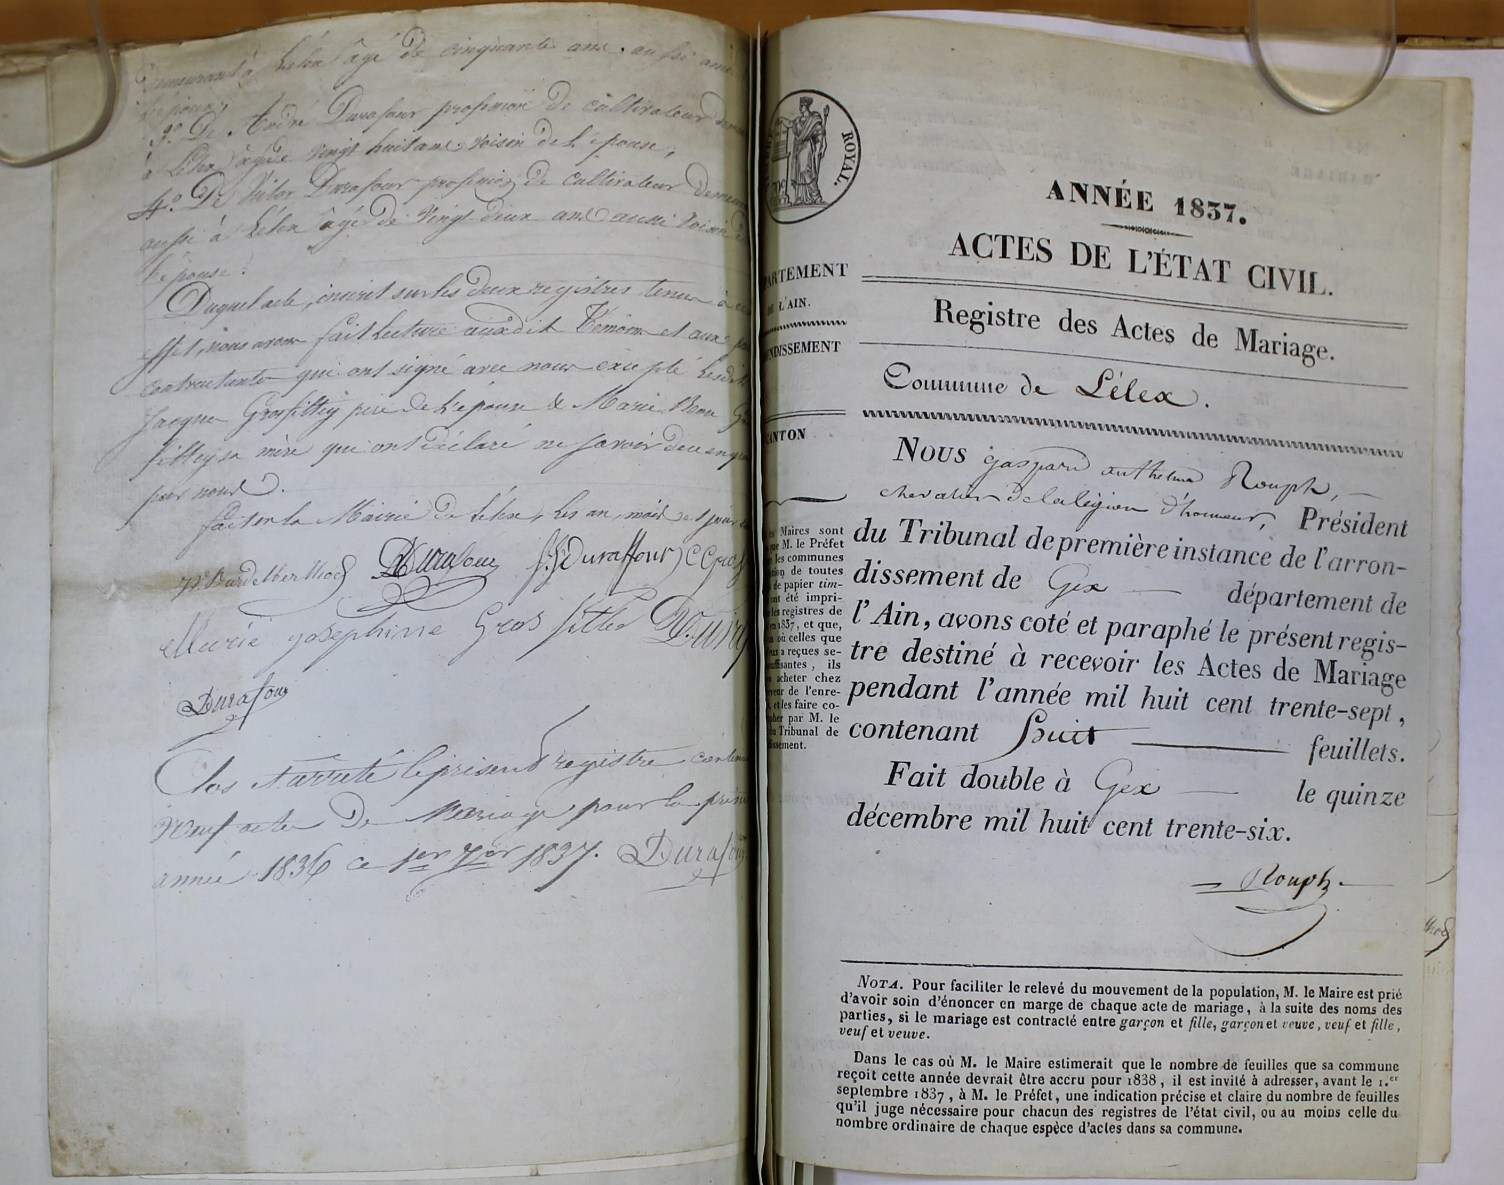 demeurant à Lélex âgé de cinquante ans, aussi ami
3.° De André Durafour profession de cultivateur
à Lélex âgé de vingt huit ans, voisin de l'épouse,
4.° De Victor Durafour profession de cultivateur
aussi à Lélex âgé de vingt deux ans aussi voisin
l'épouse.
Duquel acte, inscrit sur les deux registres tenus à
effet, nous avons fait lecture audit Témoins et aux
contractants qui ont signé avec nous excepté
Jacques Grosfilley père de l'épouse & Marie
filley sa mère qui ont déclaré ne savoir
par nous.
fait en la Mairie de Lélex, les an, mois et jour
Durafour J. Duraffour
Marie josephine Gros fillex
Durafour
Clos & arrêté le présent registre
Neuf actes de Mariage pour la
année 1836 ce 1er 1837. Durafour
ROYAL.
ANNÉE 1837.
ACTES DE L'ÉTAT CIVIL.
ARTEMENT
L'AIN.
NDISSEMENT
ANTON
Registre des Actes de Mariage.
Commune de Lélex.
Maires sont
M. le Préfet
les communes
tion de toutes
de papier tim-
ont été impri-
les registres de
1837, et que,
où celles que
a reçues se-
uffisantes, ils
acheter chez
veur de l'enre-
et les faire co-
pher par M. le
Tribunal de
issement.
Nous gaspard anthelme Rouph, —
chevalier de la légion d'honneur, Président
du Tribunal de première instance de l'arron-
dissement de Gex — département de
l'Ain, avons coté et paraphé le présent regis-
tre destiné à recevoir les Actes de Mariage
pendant l'année mil huit cent trente-sept,
contenant huit — feuillets.
Fait double à Gex — le quinze
décembre mil huit cent trente-six.
— Rouph. —
NOTA. Pour faciliter le relevé du mouvement de la population, M. le Maire est prié
d'avoir soin d'énoncer en marge de chaque acte de mariage, à la suite des noms des
parties, si le mariage est contracté entre garçon et fille, garçon et veuve, veuf et fille,
veuf et veuve.
Dans le cas où M. le Maire estimerait que le nombre de feuilles que sa commune
reçoit cette année devrait être accru pour 1838, il est invité à adresser, avant le 1.er
septembre 1837, à M. le Préfet, une indication précise et claire du nombre de feuilles
qu'il juge nécessaire pour chacun des registres de l'état civil, ou au moins celle du
nombre ordinaire de chaque espèce d'actes dans sa commune.